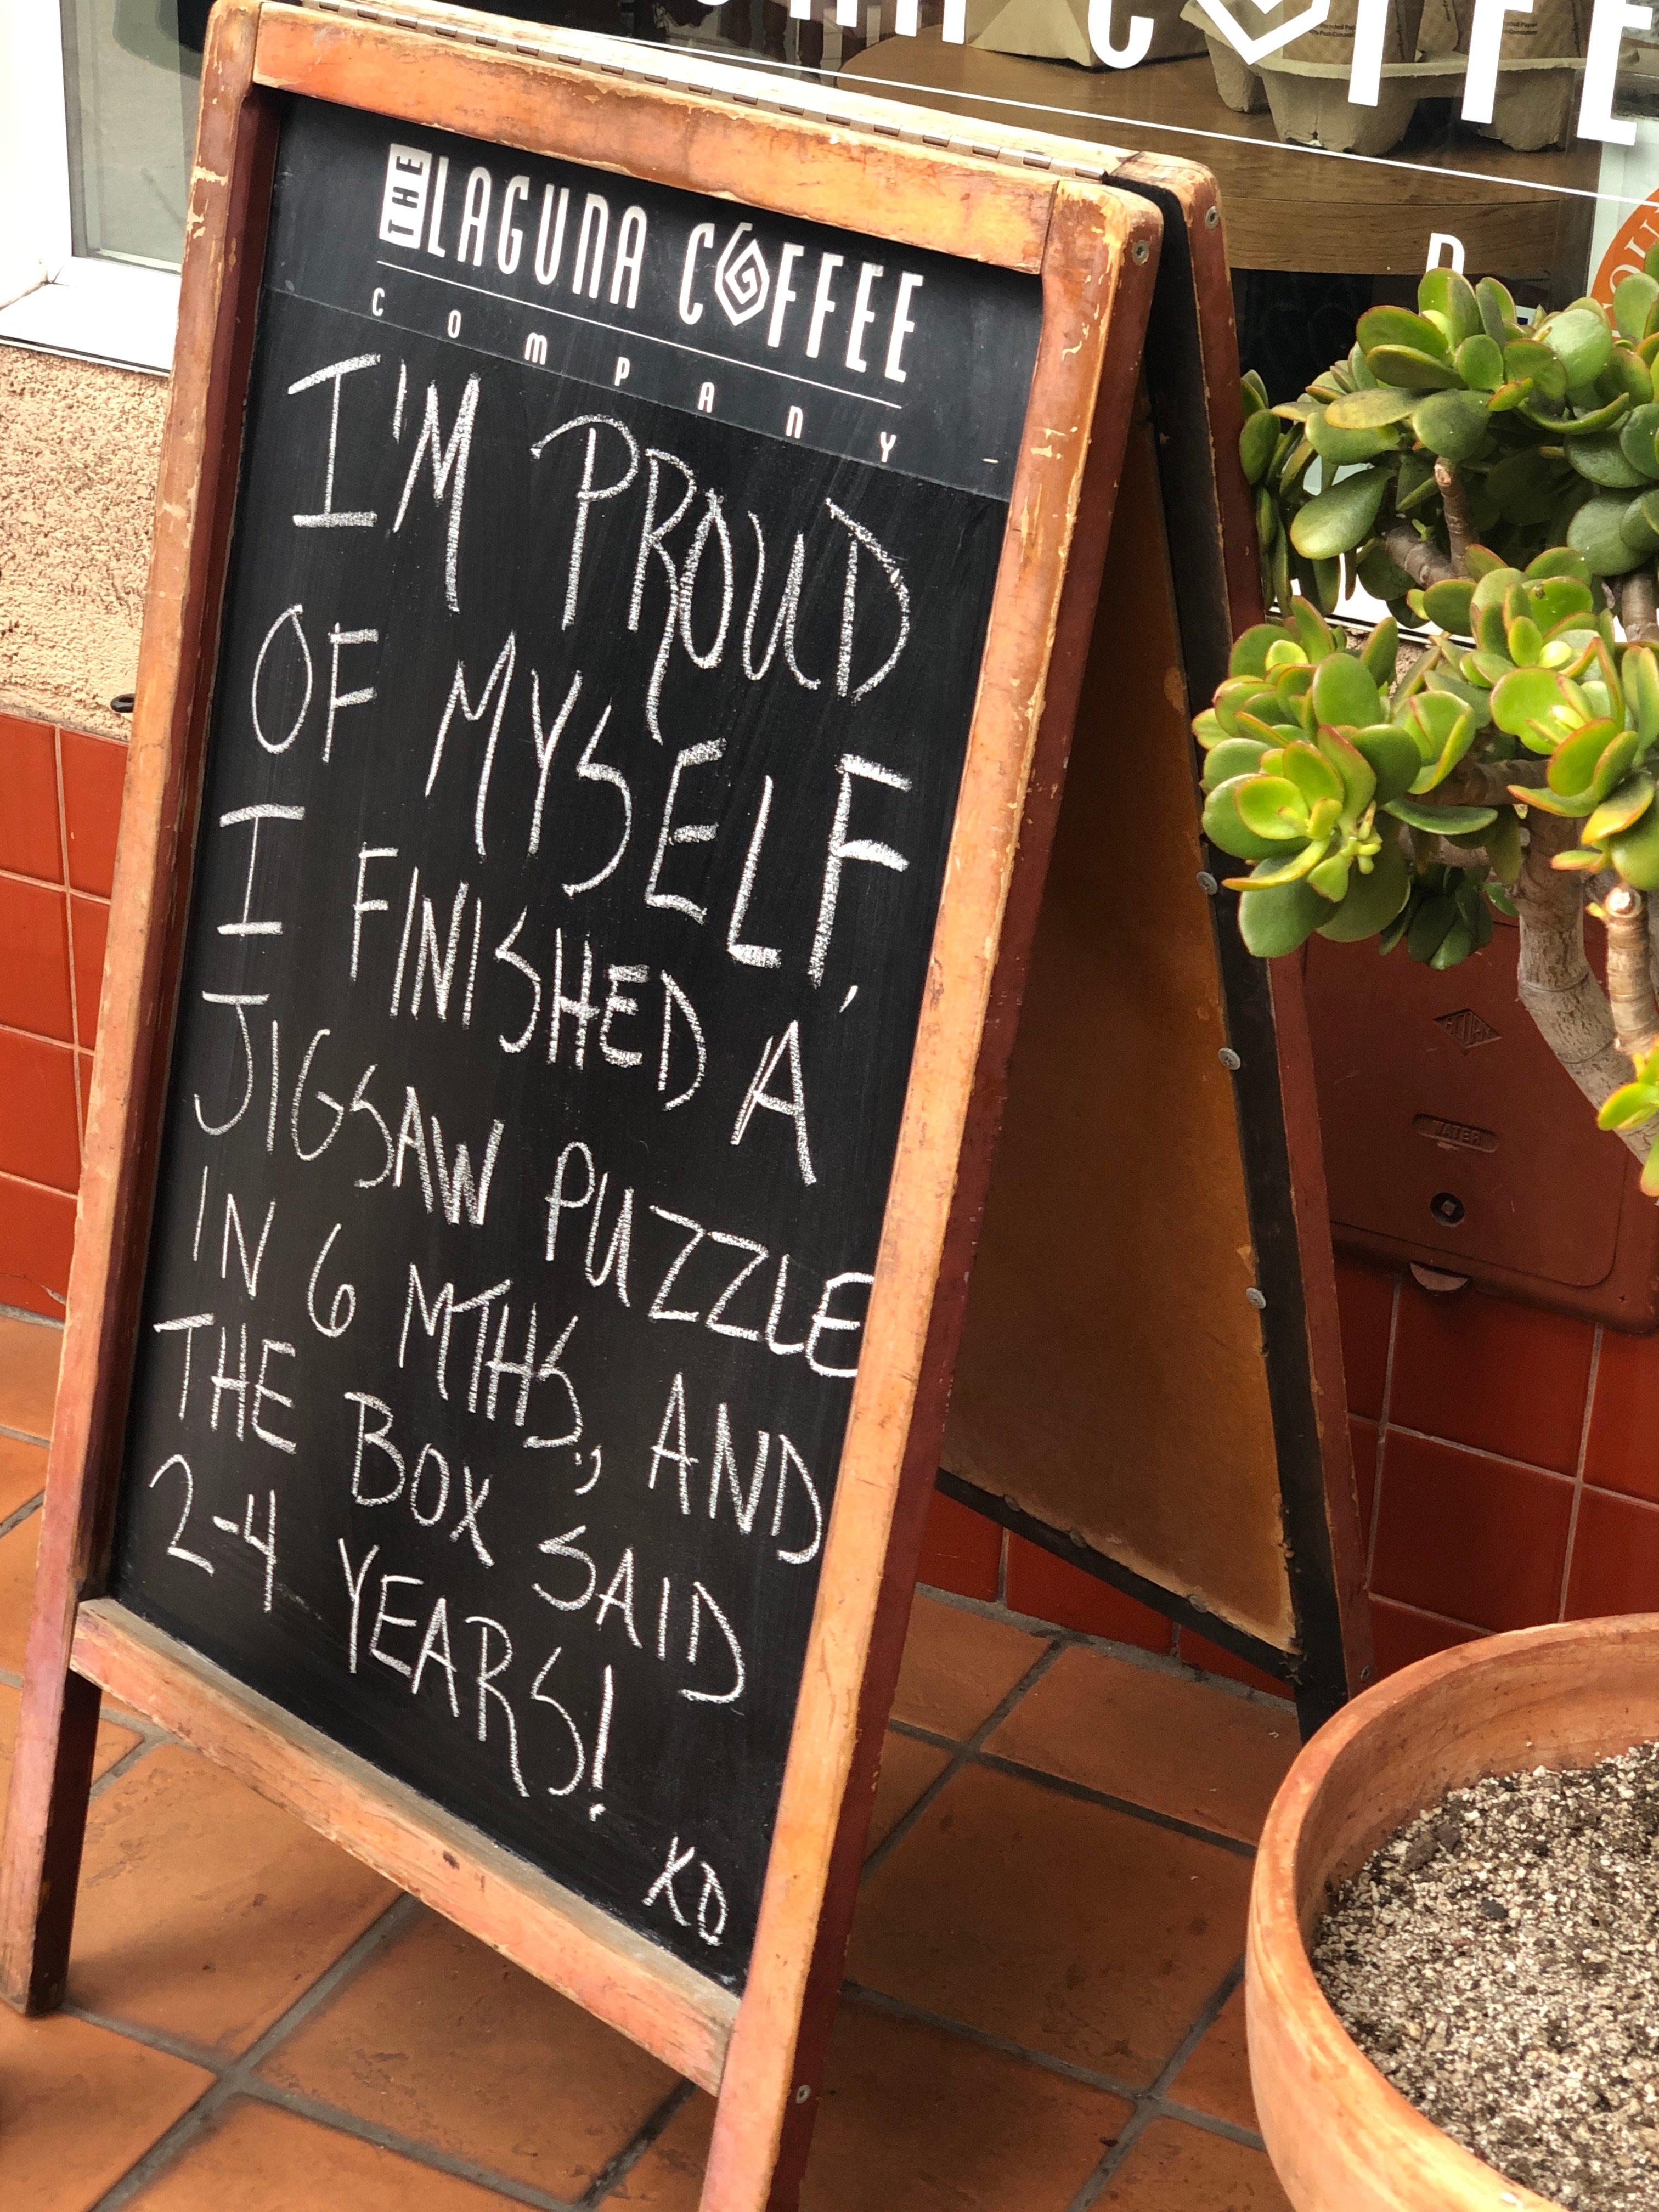 THE LAGUNA COFFEE
COMPANY
I'M PROUD
OF MYSELF,
I FINISHED A
JIGSAW PUZZLE
IN 6 MTHS., AND
THE BOX SAID
2-4 YEARS!
KD
WATER